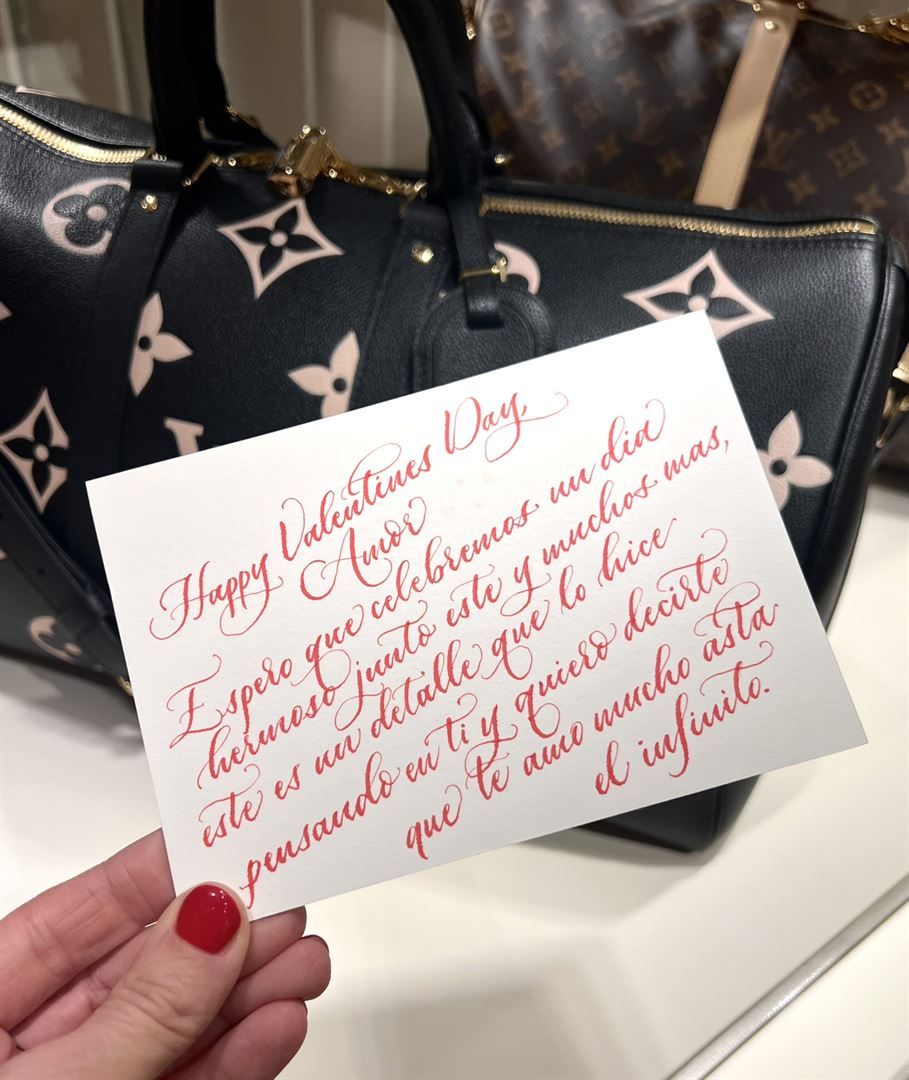 Happy Valentines Day,
Amor
Espero que celebremos un dia
hermoso junto este y muchos mas,
este es un detalle que lo hice
pensando en ti y quiero decirte
que te amo mucho asta
el infinito.